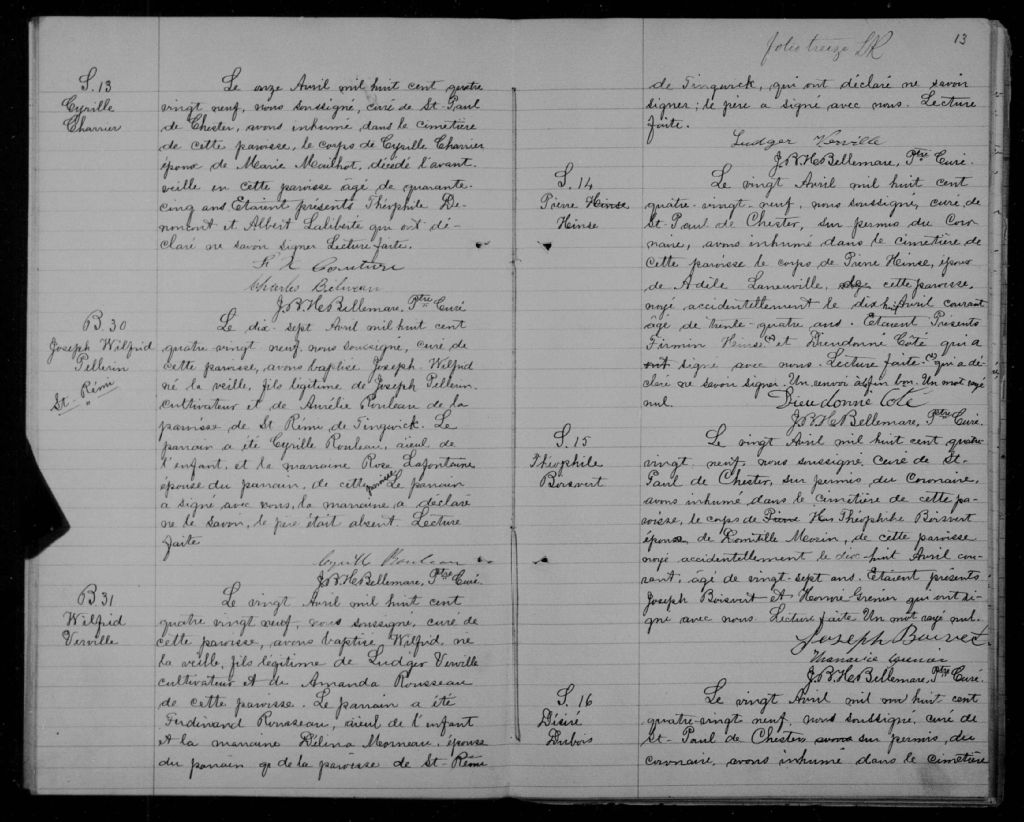 S. 13
Cyrille
Charrier
Le onze Avril mil huit cent quatre
vingt neuf, nous soussigné, curé de St-Paul
de Chester, avons inhumé dans le cimetière
de cette paroisse, le corps de Cyrille Charrier
époux de Marie Mailhot, décédé l'avant-
veille en cette paroisse âgé de quarante-
cinq ans Etaient présents Théophile De-
moncourt et Albert Laliberté qui ont dé-
claré ne savoir signer Lecture faite.
Couture
Charles
J.B.H. Bellemare, Ptre Curé
B. 30
Joseph Wilfrid
Pellerin
St-Rémi
Le dix-sept Avril mil huit cent
quatre vingt neuf nous soussigné, curé de
cette paroisse, avons baptisé Joseph Wilfrid
né la veille, fils légitime de Joseph Pellerin
cultivateur et de Aurélie Rouleau de la
paroisse de St Rémi de Tingwick. Le
parrain a été Cyrille Rouleau, aïeul de
l'enfant, et la marraine Rose Lafontaine
épouse du parrain, de cette paroisse Le parrain
a signé avec nous, la marraine a déclaré
ne le savoir, le père était absent Lecture
faite
Cyrille Rouleau
J.B.H. Bellemare, Ptre Curé
B 31
Wilfrid
Verville
Le vingt Avril mil huit cent
quatre vingt neuf, nous soussigné, curé de
cette paroisse, avons baptisé Wilfrid, né
la veille, fils légitime de Ludger Verville
cultivateur et de Amanda Rousseau
de cette paroisse. Le parrain a été
Ferdinand Rousseau, aïeul de l'enfant
et la marraine Délina Morneau, épouse
du parrain de la paroisse de St-Rémi
folio treize LR
13
de Tingwick, qui ont déclaré ne savoir
signer; le père a signé avec nous. Lecture
faite.
Ludger Verville
J.B.H. Bellemare, Ptre Curé.
S. 14
Pierre Hinse
Hinse
Le vingt Avril mil huit cent
quatre-vingt-neuf, nous soussigné, curé de
St-Paul de Chester, sur permis du Coro-
naire, avons inhumé dans le cimetière de
cette paroisse le corps de Pierre Hinse, époux
de Adèle Laneuville, de cette paroisse,
noyé accidentellement le dix huit Avril courant
âgé de trente-quatre ans. Etaient Présents
Firmin Hinse et Dieudonné Côté qui a
ont signé avec nous. Lecture faite. qui a dé-
claré ne savoir signer. Un renvoi à fin bon. Un mot rayé
nul.
Dieudonné Coté
J.B.H. Bellemare, Ptre Curé.
S. 15
Théophile
Boisvert
Le vingt Avril mil huit cent quatre
vingt neuf, nous soussigné, curé de St-
Paul de Chester, sur permis du Coronaire,
avons inhumé dans le cimetière de cette pa-
roisse, le corps de Pierre Hin Théophile Boisvert
époux de Domitille Morin, de cette paroisse
noyé accidentellement le dix-huit Avril cou-
rant, âgé de vingt-sept ans. Etaient présents
Joseph Boisvert et Honoré Grenier qui ont si-
gné avec nous Lecture faite Un mot rayé nul.
Joseph Boivert
J.B.H. Bellemare, Ptre Curé.
S. 16
Désiré
Dubois
Le vingt Avril mil huit cent
quatre-vingt neuf, nous soussigné, curé de
St-Paul de Chester avons sur permis, du
coronaire, avons inhumé dans le cimetière